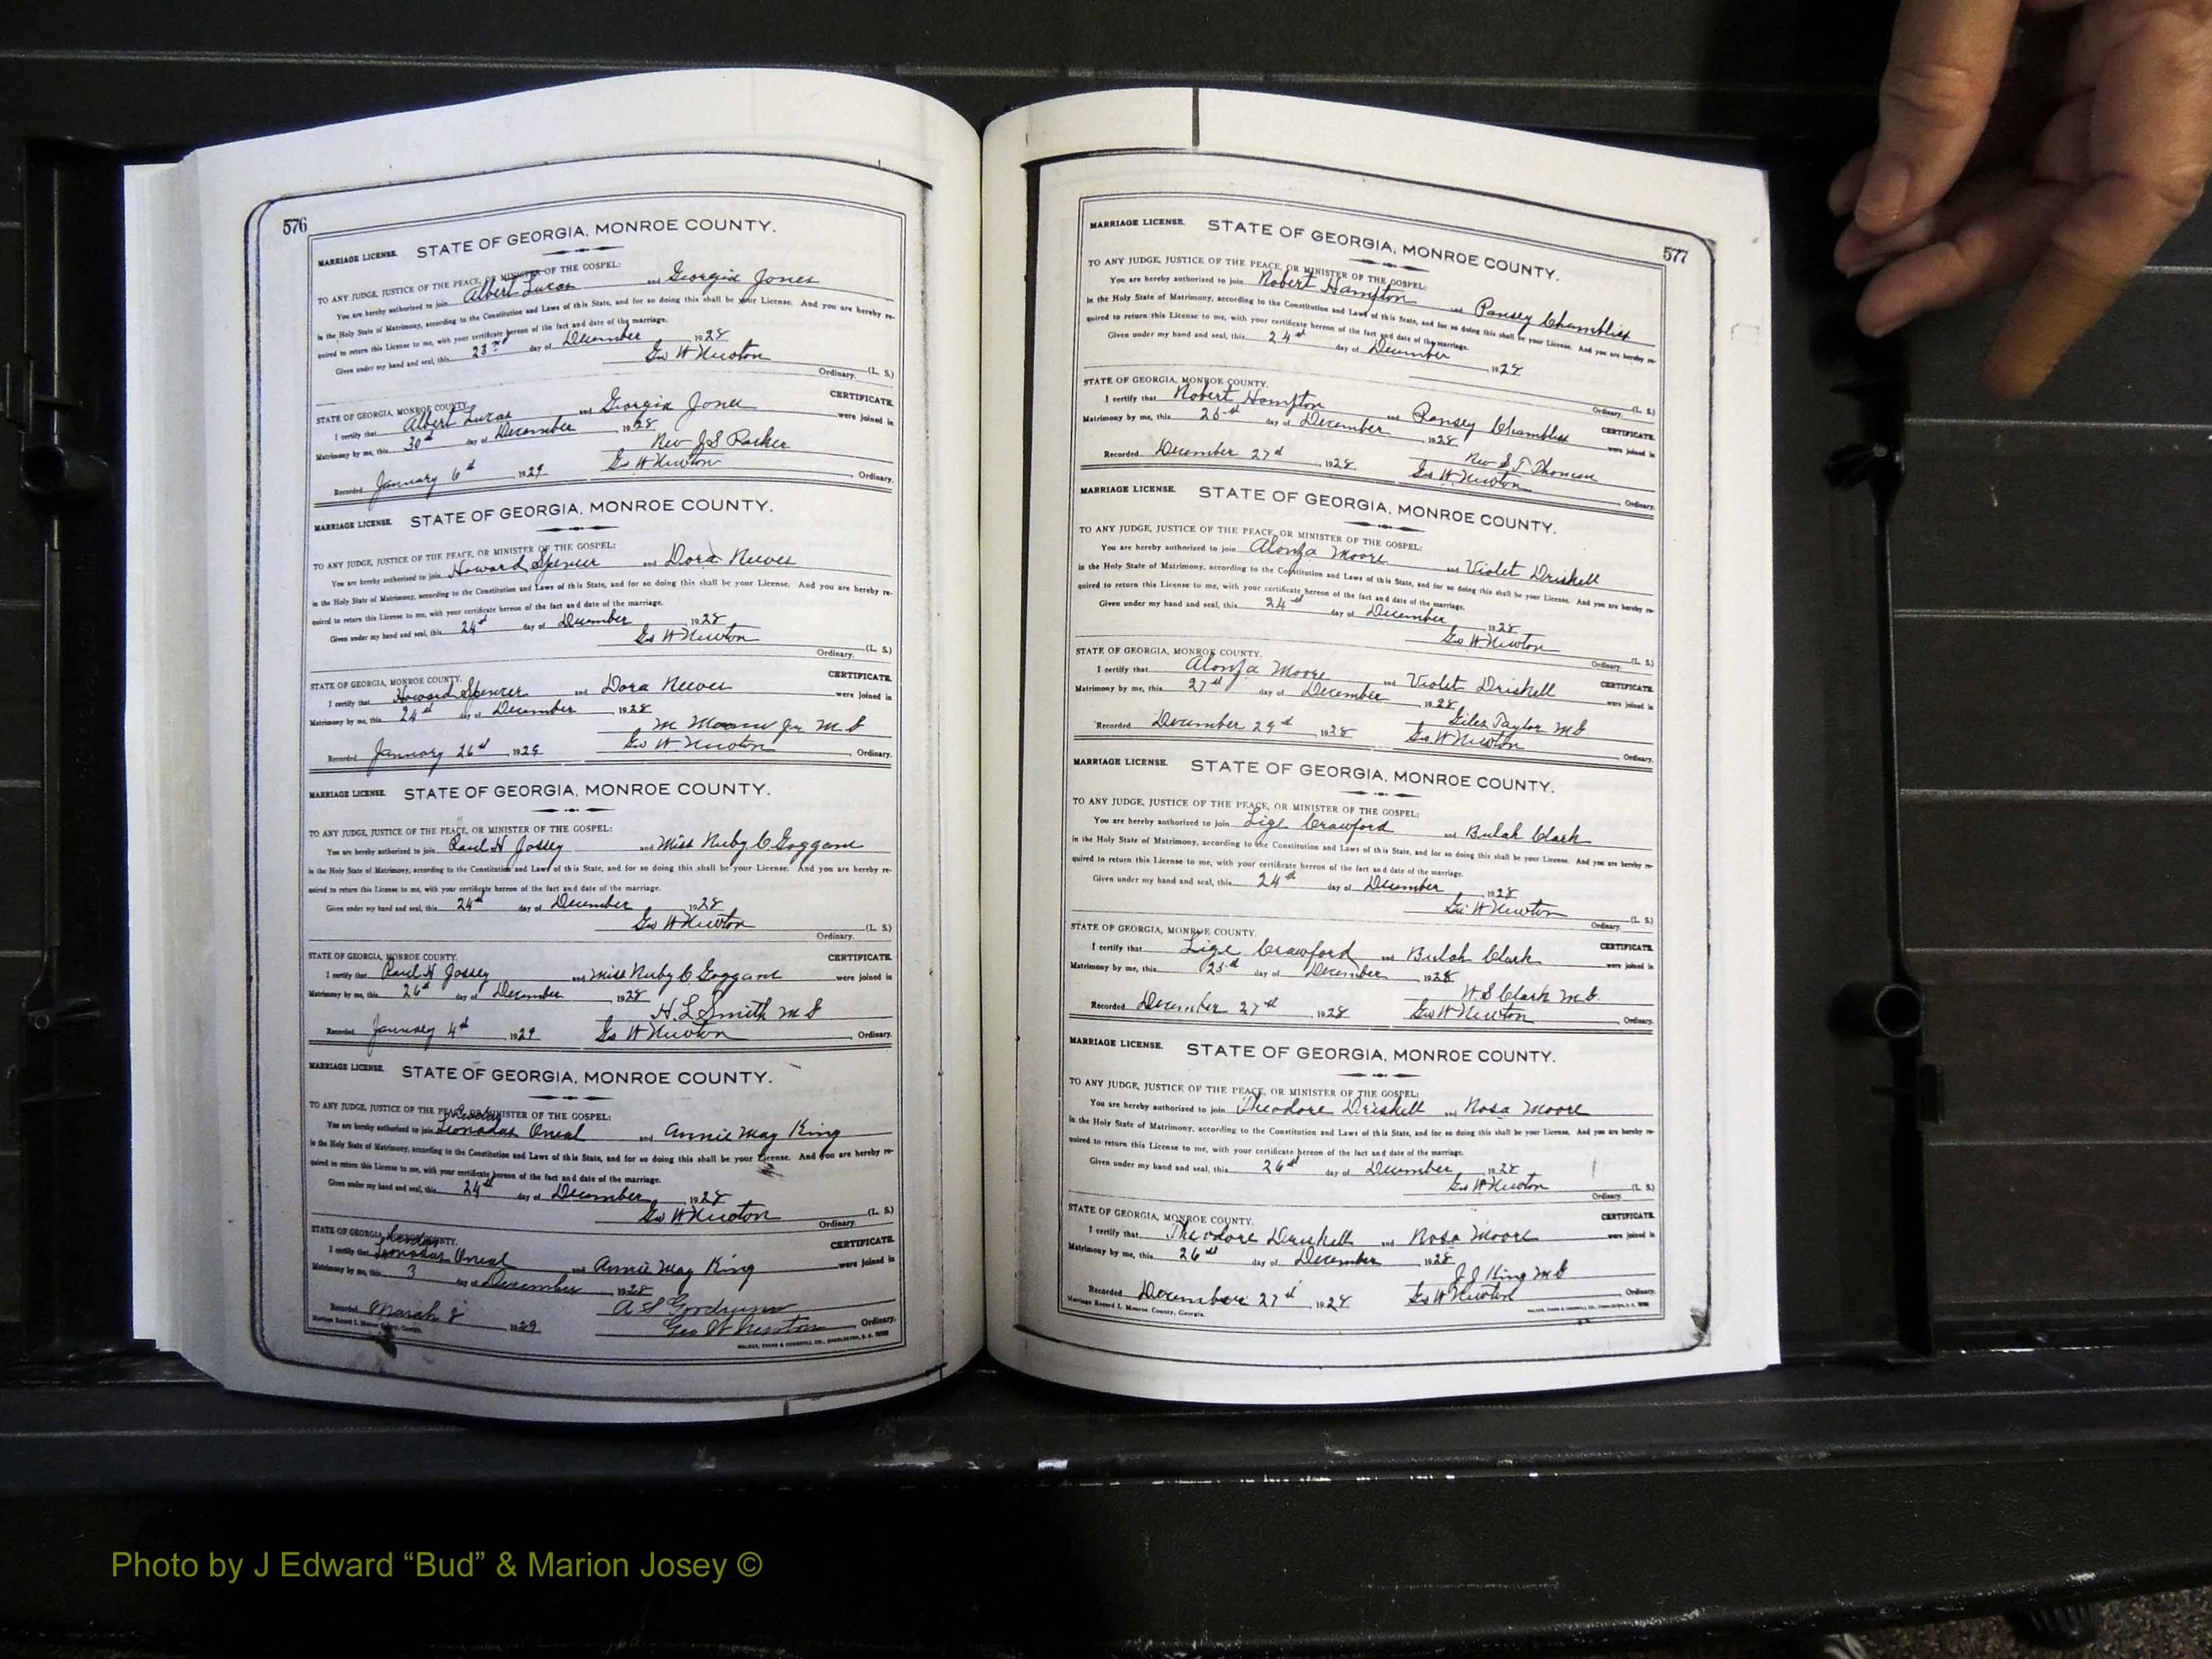 576
MARRIAGE LICENSE. STATE OF GEORGIA, MONROE COUNTY.
TO ANY JUDGE, JUSTICE OF THE PEACE, OR MINISTER OF THE GOSPEL:
You are hereby authorized to join Albert Lucas and Georgia Jones
in the Holy State of Matrimony, according to the Constitution and Laws of this State, and for so doing this shall be your License. And you are hereby re-
quired to return this License to me, with your certificate hereon of the fact and date of the marriage.
Given under my hand and seal, this 23rd day of December 1928
Geo W Newton (L. S.)
Ordinary.
STATE OF GEORGIA, MONROE COUNTY. CERTIFICATE.
I certify that Albert Lucas and Georgia Jones were joined in
Matrimony by me, this 30th day of December 1928
Rev J S Parker
Recorded January 6th 1929 Geo W Newton Ordinary.
MARRIAGE LICENSE. STATE OF GEORGIA, MONROE COUNTY.
TO ANY JUDGE, JUSTICE OF THE PEACE, OR MINISTER OF THE GOSPEL:
You are hereby authorized to join Howard Spencer and Dora Reeves
in the Holy State of Matrimony, according to the Constitution and Laws of this State, and for so doing this shall be your License. And you are hereby re-
quired to return this License to me, with your certificate hereon of the fact and date of the marriage.
Given under my hand and seal, this 24th day of December 1928
Geo W Newton (L. S.)
Ordinary.
STATE OF GEORGIA, MONROE COUNTY. CERTIFICATE.
I certify that Howard Spencer and Dora Reeves were joined in
Matrimony by me, this 24th day of December 1928
M Jr M G
Recorded January 26th 1929 Geo W Newton Ordinary.
MARRIAGE LICENSE. STATE OF GEORGIA, MONROE COUNTY.
TO ANY JUDGE, JUSTICE OF THE PEACE, OR MINISTER OF THE GOSPEL:
You are hereby authorized to join Paul H Jossey and Miss Ruby C Goggans
in the Holy State of Matrimony, according to the Constitution and Laws of this State, and for so doing this shall be your License. And you are hereby re-
quired to return this License to me, with your certificate hereon of the fact and date of the marriage.
Given under my hand and seal, this 24th day of December 1928
Geo W Newton (L. S.)
Ordinary.
STATE OF GEORGIA, MONROE COUNTY. CERTIFICATE.
I certify that Paul H Jossey and Miss Ruby C Goggans were joined in
Matrimony by me, this 26th day of December 1928
H. L Smith M G
Recorded January 4th 1929 Geo W Newton Ordinary.
MARRIAGE LICENSE. STATE OF GEORGIA, MONROE COUNTY.
TO ANY JUDGE, JUSTICE OF THE PEACE, OR MINISTER OF THE GOSPEL:
You are hereby authorized to join Leonadas Oneal and Annie May King
in the Holy State of Matrimony, according to the Constitution and Laws of this State, and for so doing this shall be your License. And you are hereby re-
quired to return this License to me, with your certificate hereon of the fact and date of the marriage.
Given under my hand and seal, this 24th day of December 1928
Geo W Newton (L. S.)
Ordinary.
STATE OF GEORGIA, MONROE COUNTY. CERTIFICATE.
I certify that Leonadas Oneal and Annie May King were joined in
Matrimony by me, this 3 day of December 1928
A S
Recorded March 8 1929 Geo W Newton Ordinary.
Marriage Record I, Monroe County, Georgia. WALKER, EVANS & COGSWELL CO., CHARLESTON, S. C.
577
MARRIAGE LICENSE. STATE OF GEORGIA, MONROE COUNTY.
TO ANY JUDGE, JUSTICE OF THE PEACE, OR MINISTER OF THE GOSPEL:
You are hereby authorized to join Robert Hampton and Pansey Chambliss
in the Holy State of Matrimony, according to the Constitution and Laws of this State, and for so doing this shall be your License. And you are hereby re-
quired to return this License to me, with your certificate hereon of the fact and date of the marriage.
Given under my hand and seal, this 24th day of December 1928
(L. S.)
Ordinary.
STATE OF GEORGIA, MONROE COUNTY. CERTIFICATE.
I certify that Robert Hampton and Pansey Chambliss were joined in
Matrimony by me, this 25th day of December 1928
Rev S T Thomas
Recorded December 27th 1928 Geo W Newton Ordinary.
MARRIAGE LICENSE. STATE OF GEORGIA, MONROE COUNTY.
TO ANY JUDGE, JUSTICE OF THE PEACE, OR MINISTER OF THE GOSPEL:
You are hereby authorized to join Alonza Moore and Violet Driskell
in the Holy State of Matrimony, according to the Constitution and Laws of this State, and for so doing this shall be your License. And you are hereby re-
quired to return this License to me, with your certificate hereon of the fact and date of the marriage.
Given under my hand and seal, this 24th day of December 1928
Geo W Newton (L. S.)
Ordinary.
STATE OF GEORGIA, MONROE COUNTY. CERTIFICATE.
I certify that Alonza Moore and Violet Driskell were joined in
Matrimony by me, this 27th day of December 1928
Giles Taylor M G
Recorded December 29th 1928 Geo W Newton Ordinary.
MARRIAGE LICENSE. STATE OF GEORGIA, MONROE COUNTY.
TO ANY JUDGE, JUSTICE OF THE PEACE, OR MINISTER OF THE GOSPEL:
You are hereby authorized to join Lige Crawford and Bulah Clark
in the Holy State of Matrimony, according to the Constitution and Laws of this State, and for so doing this shall be your License. And you are hereby re-
quired to return this License to me, with your certificate hereon of the fact and date of the marriage.
Given under my hand and seal, this 24th day of December 1928
Geo W Newton (L. S.)
Ordinary.
STATE OF GEORGIA, MONROE COUNTY. CERTIFICATE.
I certify that Lige Crawford and Bulah Clark were joined in
Matrimony by me, this 25th day of December 1928
W. S Clark M G.
Recorded December 27th 1928 Geo W Newton Ordinary.
MARRIAGE LICENSE. STATE OF GEORGIA, MONROE COUNTY.
TO ANY JUDGE, JUSTICE OF THE PEACE, OR MINISTER OF THE GOSPEL:
You are hereby authorized to join Theodore Driskell and Rosa Moore
in the Holy State of Matrimony, according to the Constitution and Laws of this State, and for so doing this shall be your License. And you are hereby re-
quired to return this License to me, with your certificate hereon of the fact and date of the marriage.
Given under my hand and seal, this 26th day of December 1928
Geo W Newton (L. S.)
Ordinary.
STATE OF GEORGIA, MONROE COUNTY. CERTIFICATE.
I certify that Theodore Driskell and Rosa Moore were joined in
Matrimony by me, this 26th day of December 1928
J J King M G
Recorded December 27th 1928 Geo W Newton Ordinary.
Marriage Record I, Monroe County, Georgia. WALKER, EVANS & COGSWELL CO., CHARLESTON, S. C.
Photo by J Edward “Bud” & Marion Josey ©